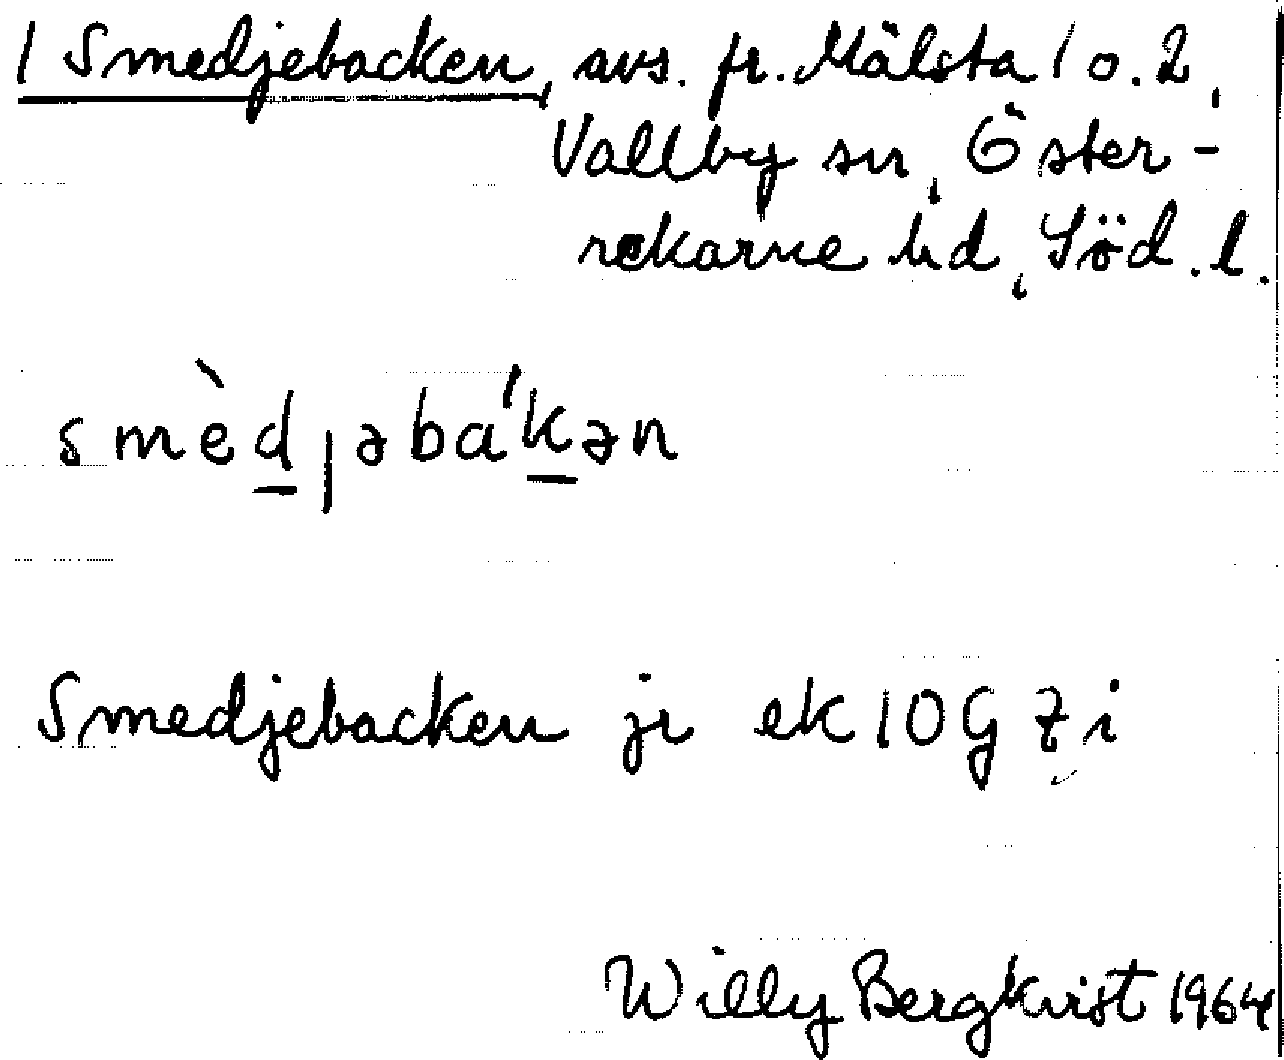 1 Smedjebacken, avs. fr. Mälsta 1 o. 2,
Vallby sn, Öster-
rekarne hd, Söd. l.
smèdjəba'kən
Smedjebacken jr ek 10G 7 i
Willy Bergkvist 1964